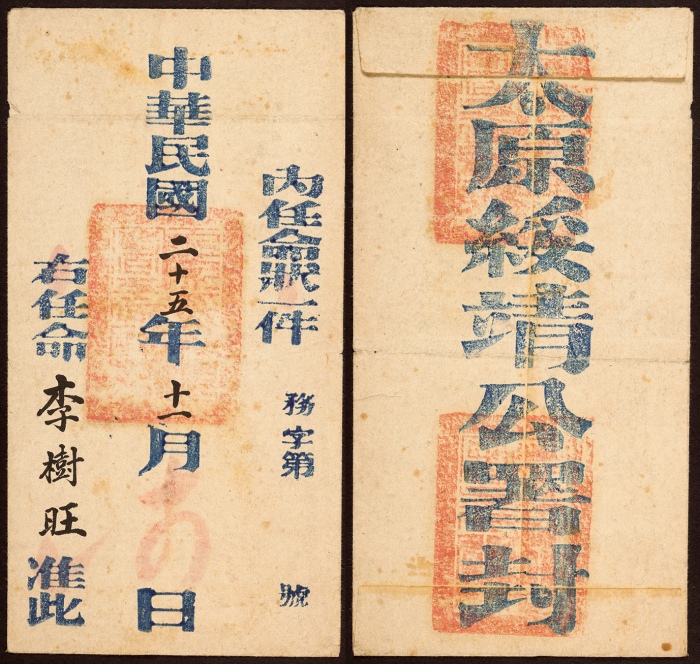 內任命狀一件
務字第 號
中華民國二十五年十一月 日
右任命李樹旺准此
太原綏靖公署封